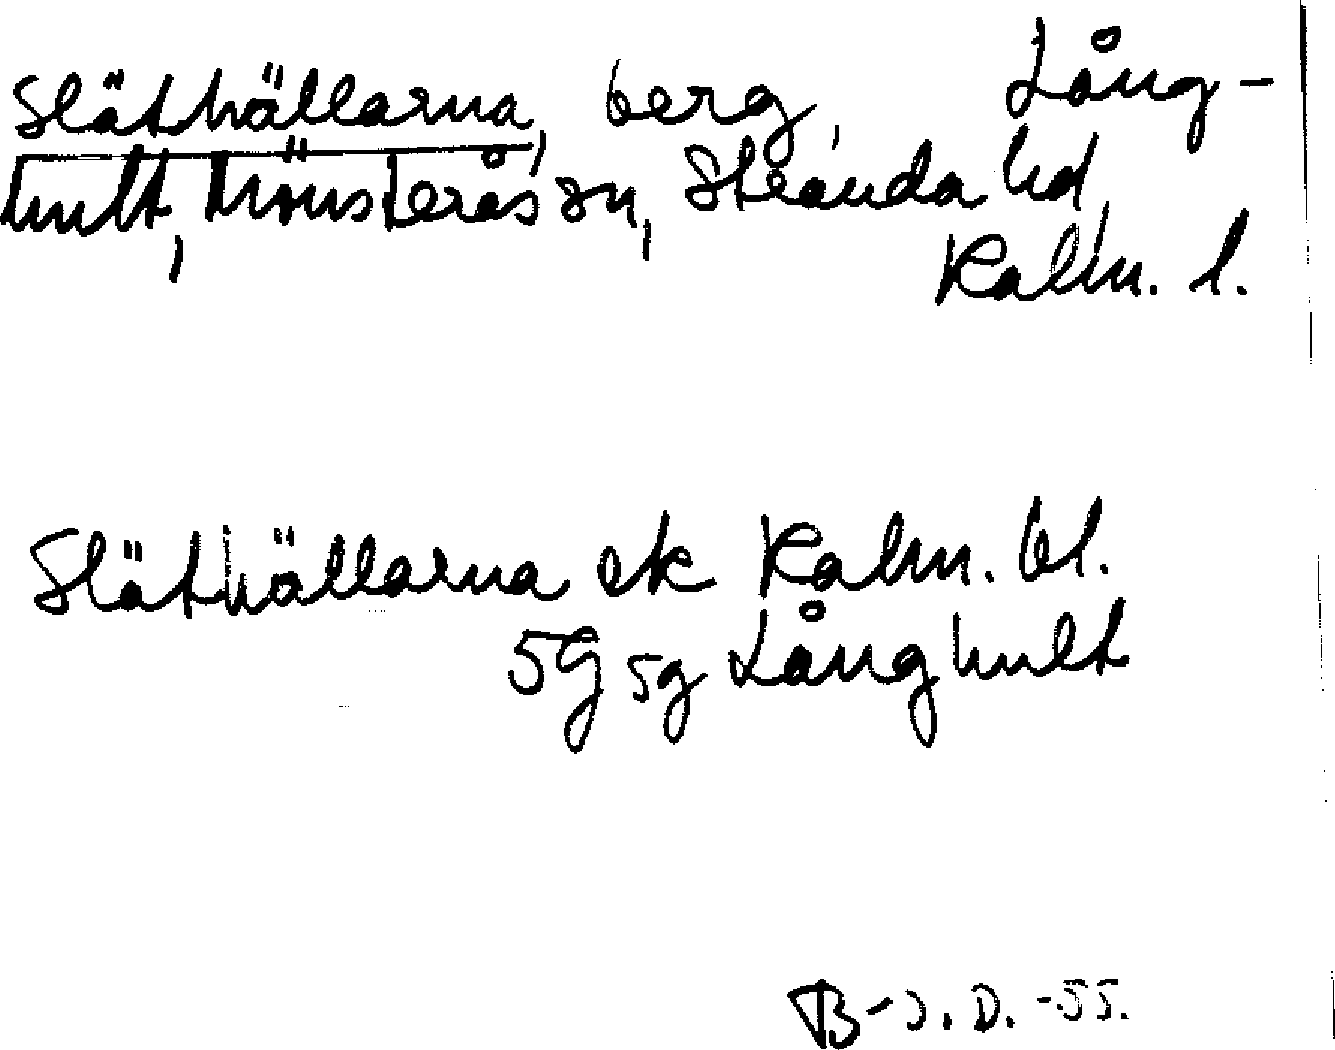 Släthällarna, berg, Lång-
hult, Mönsterås sn, Stranda hd,
Kalm. l.
Släthällarna ek Kalm. bl.
5G 5g Långhult
B-J.D. -55.